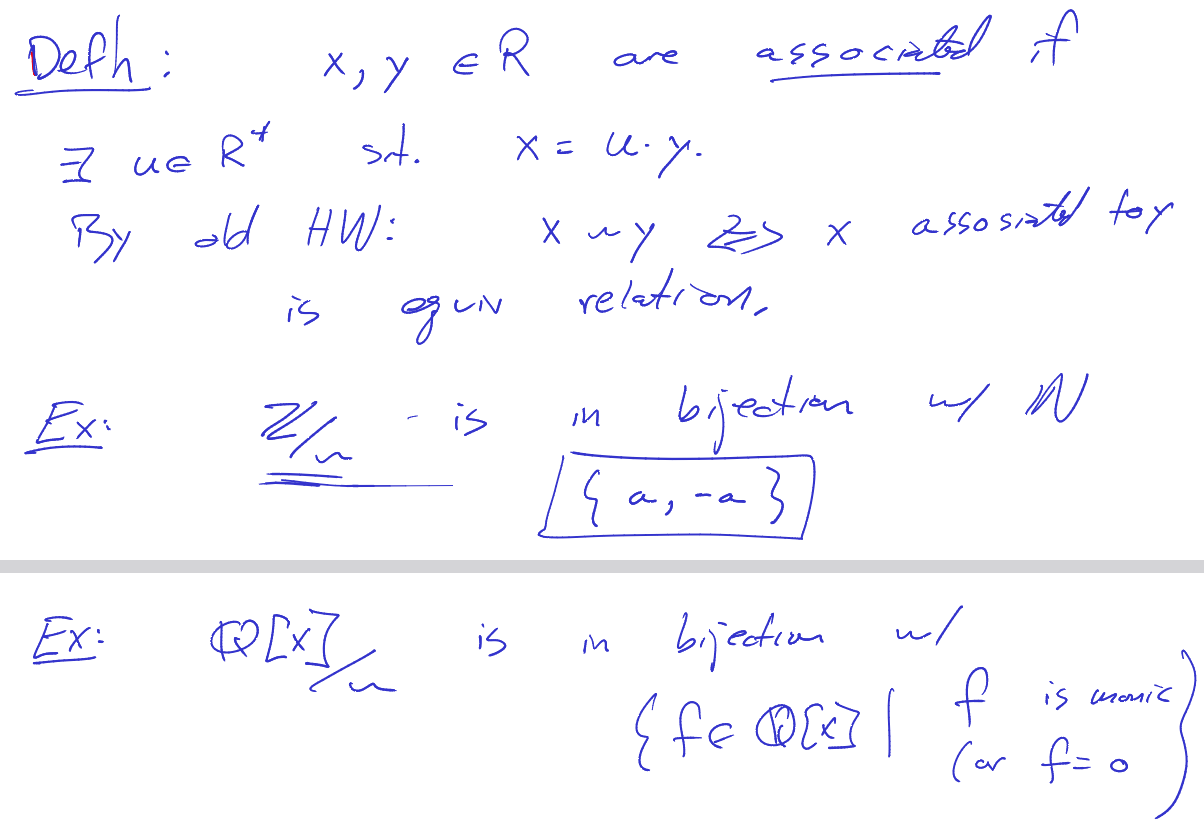 Defn: x, y ∈ R are associated if
∃ u ∈ R^x s.t. x = u·y.
By old HW: x ~ y <=> x assosiated to y
is equiv relation.
Ex: ℤ/~ - is in bijection w/ ℕ
{a, -a}
Ex: ℚ[x]/~ is in bijection w/
{f ∈ ℚ[x] | f is monic
(or f = 0}